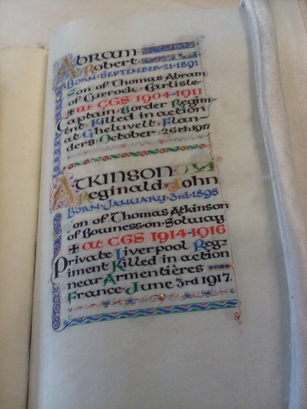 Abram
Robert
Born September 21 1891
Son of Thomas Abram
of Garrock Carlisle
+ at CGS 1904-1911
Captain Border Regim-
ent Killed in action
at Gheluvelt Flan-
ders October 26th 1917
Atkinson
Reginald John
Born January 3rd 1898
Son of Thomas Atkinson
of Bowness-on-Solway
+ at CGS 1914-1916
Private Liverpool Reg-
iment Killed in action
near Armentières
France June 3rd 1917.